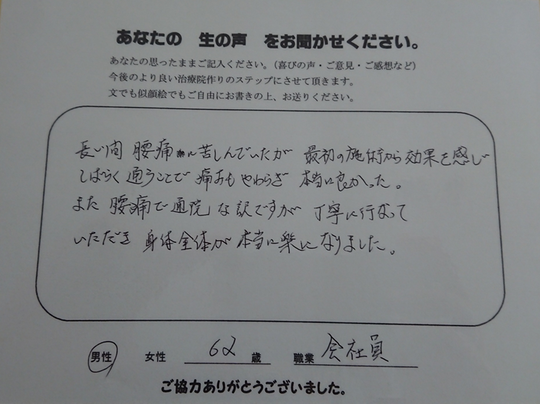 あなたの 生の声 をお聞かせください。
あなたの思ったままご記入ください。(喜びの声・ご意見・ご感想など)
今後のより良い治療院作りのステップにさせて頂きます。
文でも似顔絵でもご自由にお書きの上、お送りください。
長い間 腰痛に苦しんでいたが 最初の施術から効果を感じ
しばらく通うことで痛みもやわらぎ 本当に良かった。
また 腰痛で通院な訳ですが 丁寧に行なって
いただき 身体全体が本当に楽になりました。
男性 女性 62 歳 職業 会社員
ご協力ありがとうございました。